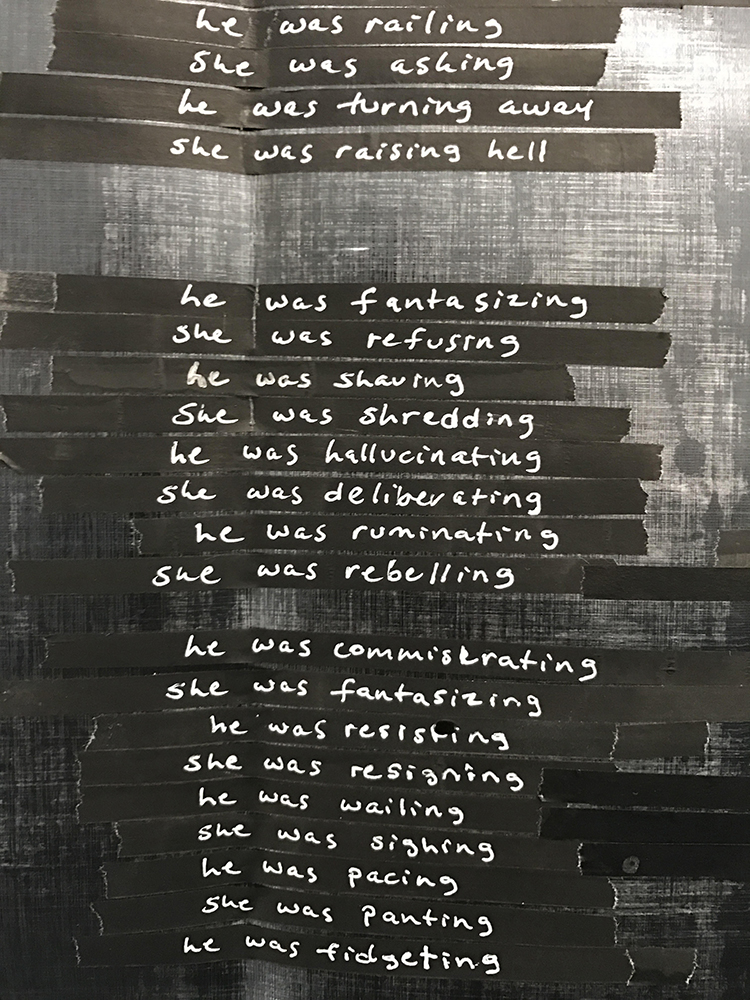 he was railing
she was asking
he was turning away
she was raising hell
he was fantasizing
she was refusing
he was shaving
she was shredding
he was hallucinating
she was deliberating
he was ruminating
she was rebelling
he was commiskrating
she was fantasizing
he was resisting
she was resigning
he was wailing
she was sighing
he was pacing
she was panting
he was fidgeting